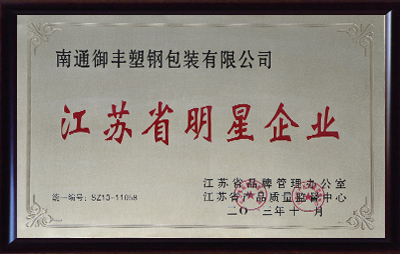 南通御丰塑钢包装有限公司
江苏省明星企业
江苏省品牌管理办公室
统一编号：SZ13-11058
江苏省产品质量监督中心
二〇一三年十一月